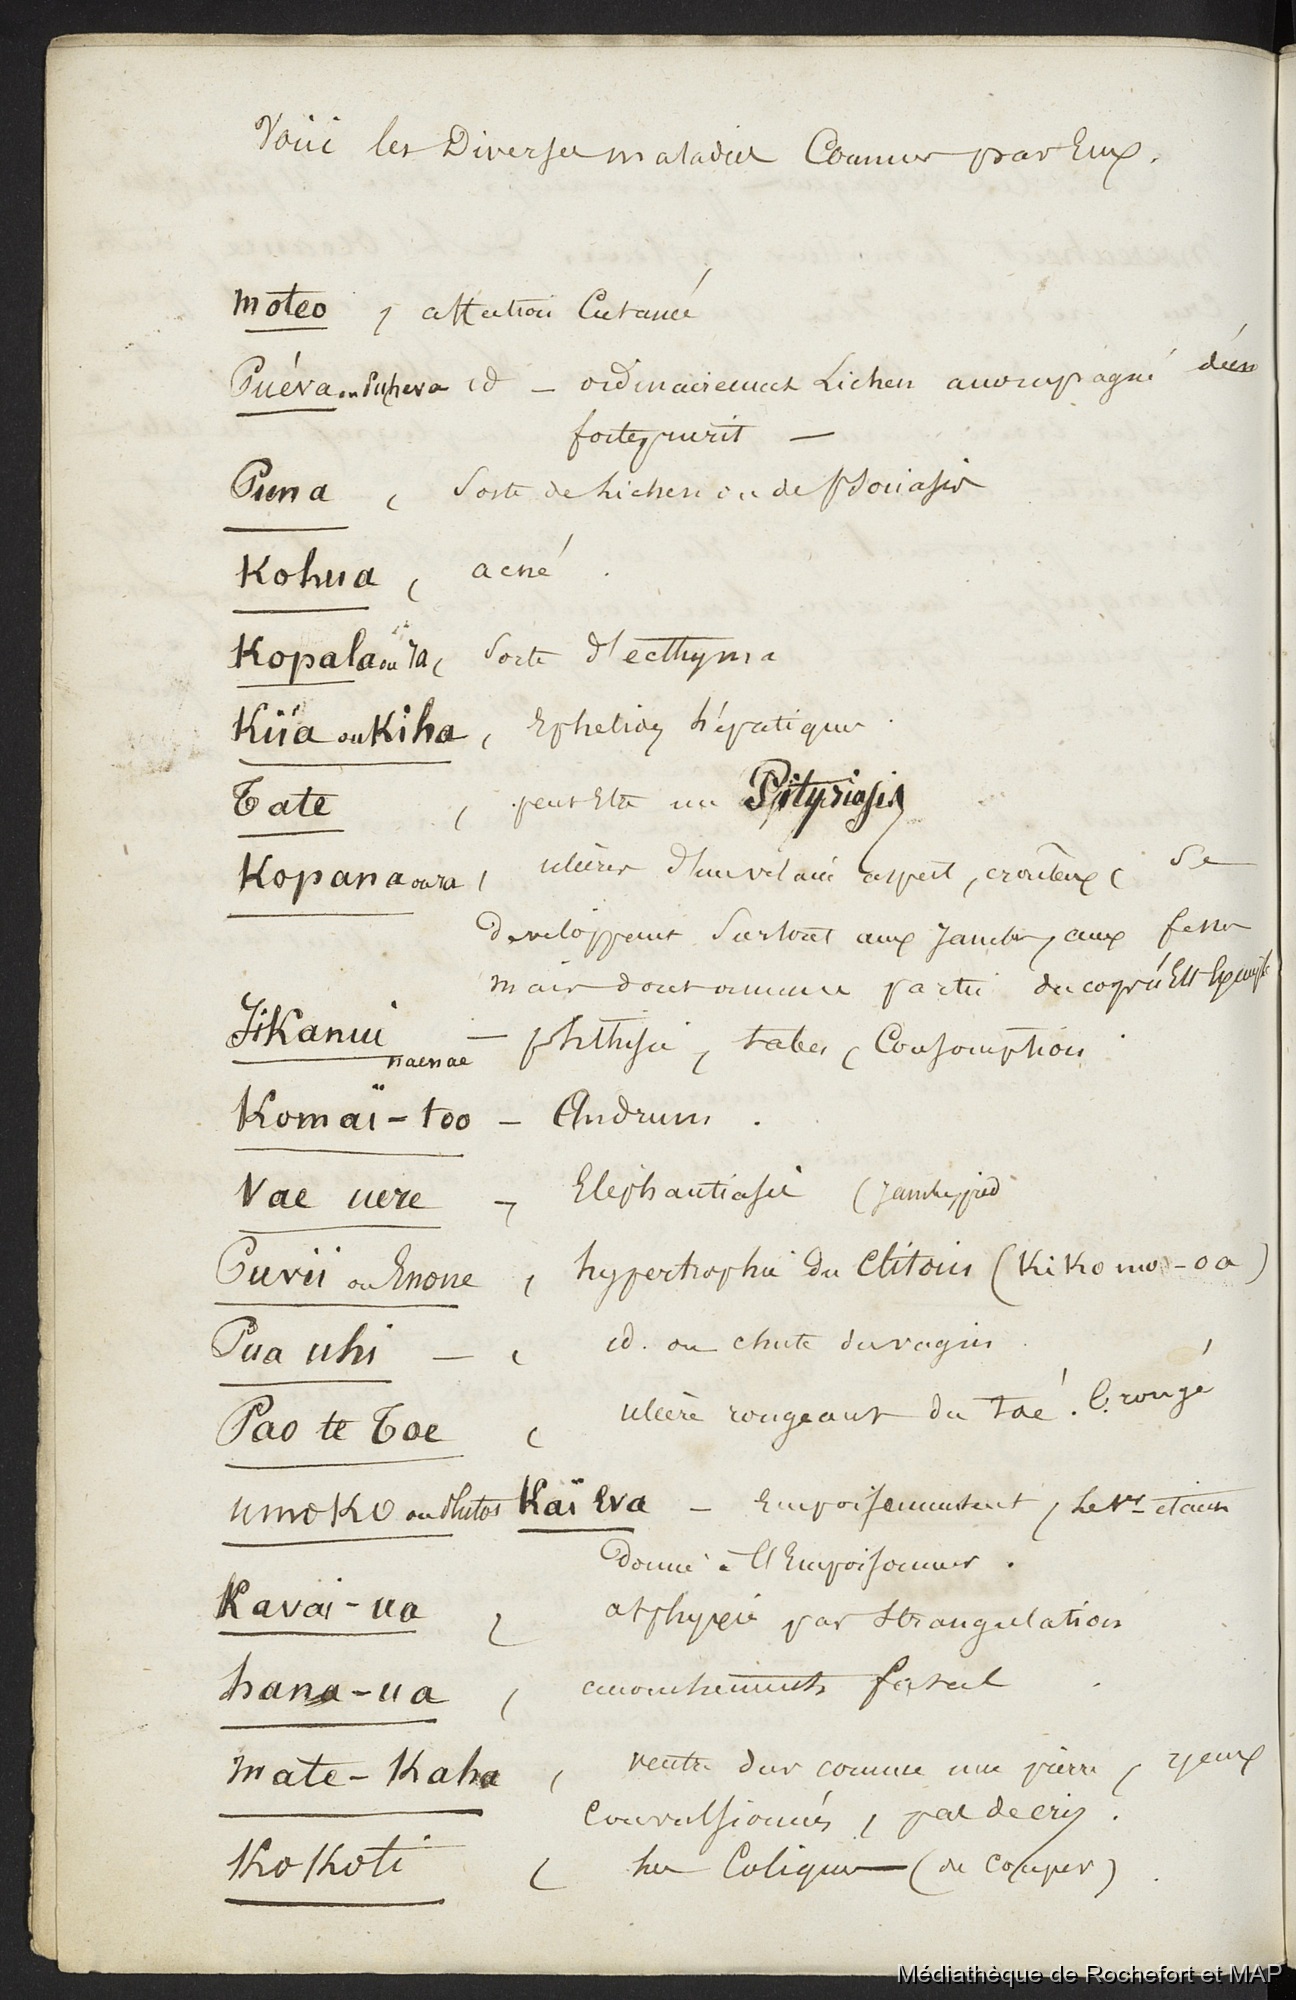 Voici les Diverses maladies Connues par Eux.
Moteo, affection Cutanée
Puéva ou Puheva id – ordinairement Lichen accompagné d'un
fort prurit —
Puna, Sorte de Lichen ou de Psoriasis
Kohua, acné.
Kopala ou ra, Sorte d'ecthyma
Kiia ou Kiha, Ephelides hépatiques.
Tate, peut Etre un Pityriasis
Kopana ou ra, ulcères d'un vilain aspect, croûteux, Se
developpent Surtout aux jambes, aux fesses
mais dont aucune partie du corps n'est Exempte
Jikanui – phthisie, tabes, Consomption.
naenae
Komaï-too – Andrum.
Vae uere – Elephantiasis (jambe, pied
Puvii ou Enone, hypertrophie du clitoris (Kikomo-oa)
Pua uhi – , id. ou chute du vagin.
Pao te Toe, ulcère rongeant du toé. C. rongé
umoko ou plutot Kaï Eva – Empoisonnement, le Vt. étaun
Donné à l'Empoisonner.
Kavai-ua, asphyxie par Strangulation
hana-ua, accouchements fatal.
Mate-Kaha, ventre dur comme une pierre, yeux
Convulsionnés, pas de cris.
Kokoti, les Coliques — (de couper).
Médiathèque de Rochefort et MAP